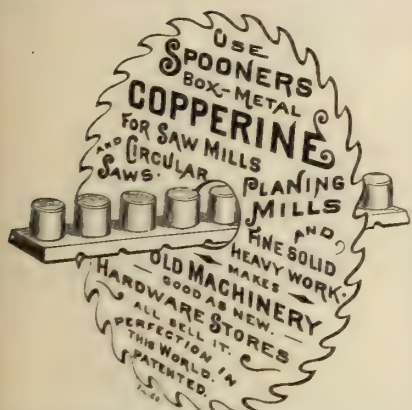 USE
SPOONERS
BOX-METAL
COPPERINE
FOR SAW MILLS
AND CIRCULAR
SAWS.
PLANING
MILLS
AND
FINE SOLID
HEAVY WORK.
MAKES
OLD MACHINERY
GOOD AS NEW.
HARDWARE STORES
ALL SELL IT.
PERFECTION IN
THIS WORLD.
PATENTED.